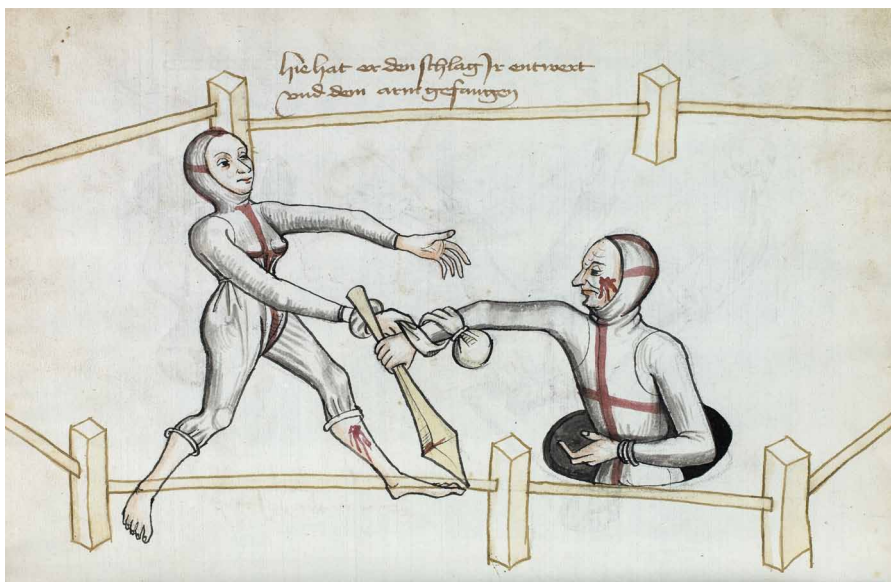 hie hat er den schlag Ir entwert
vnd dem arm gefangen